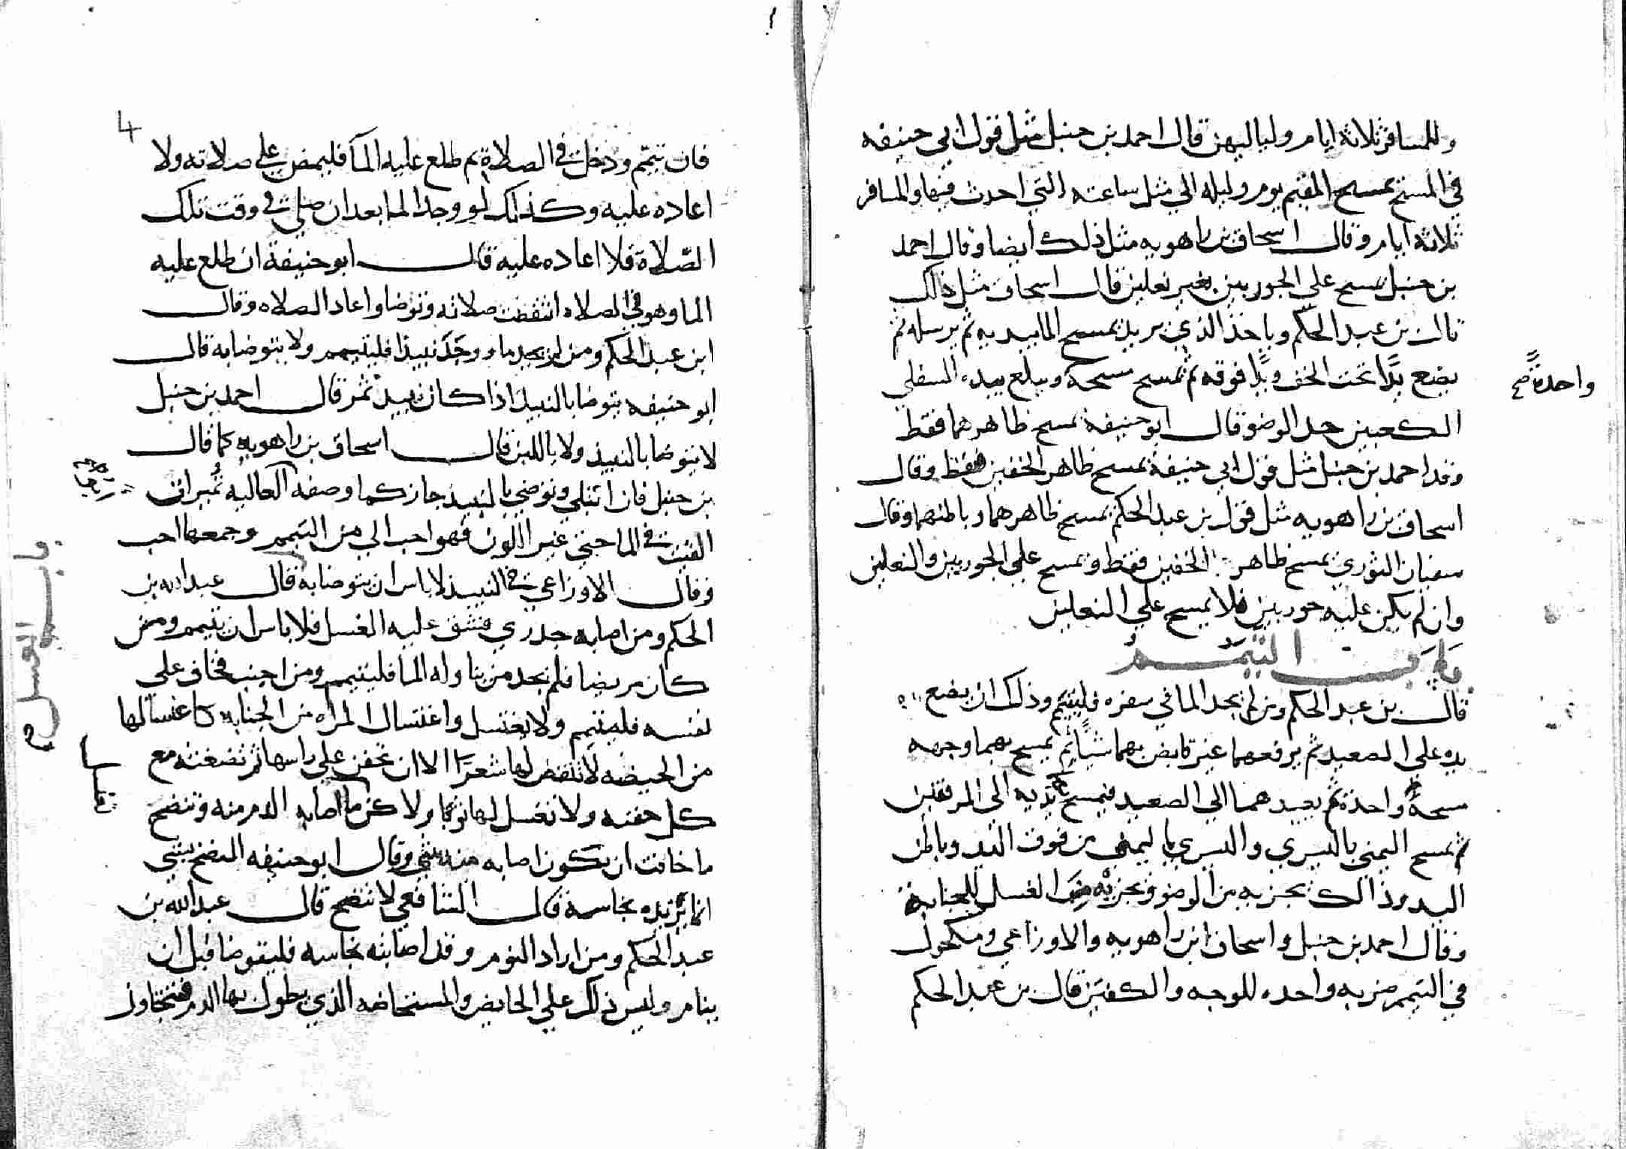 وللمسافر ثلاثة ايام ولياليهن قال احمد بن حنبل مثل قول ابي حنيفه
في المسح يمسح المقيم يوم وليله الي مثل ساعته التي احدث فيها والمسافر
ثلاثة ايام وقال اسحاق بن راهويه مثل ذلك ايضا وقال احمد
بن حنبل يمسح على الجوربين بغير نعلين قال اسحاق مثل ذلك
قال بن عبد الحكم وياخذ الذي يريد يمسح الما بيديه ثم يرسله ثم
يضع يدا تحت الخف ويدا فوقه ثم يمسح مسحة ويبلغ بيده السفلي
واحدة صح
الكعبين حد الوضو قال ابو حنيفة يمسح ظاهرهما فقط
وقد احمد بن حنبل مثل قول ابي حنيفة يمسح ظاهر الخفين فقط وقال
اسحاق بن راهويه مثل قول بن عبد الحكم يمسح ظاهرهما وباطنهما وقال
سفيان الثوري يمسح ظاهر الخفين فقط ويمسح على الجوربين والنعلين
وان لم يكن عليه جوربين فلا يمسح علي النعلين
التيمم
قال بن عبد الحكم ومن لم يجد الما في سفره فليتيمم وذلك ان يضع
يده على الصعيد ثم يرفعهما غير قابض بهما شيا ثم يمسح بهما وجهه
مسحة واحدة ثم يعيدهما الى الصعيد فيمسح يديه الى المرفقين
ثم يمسح اليمني باليسري واليسري باليمني من فوق اليد وباطن
اليد وذلك يجزيه من الوضو ويجزيه من الغسل للجنابة
وقال احمد بن حنبل واسحاق ابن راهويه والاوزاعي ومكحول
في التيمم ضربه واحده للوجه والكفين قال بن عبد الحكم
4
فان تيمم ودخل في الصلاة ثم طلع عليه الما فليمض علي صلاته ولا
اعاده عليه وكذلك لو وجد الما بعد ان صلي في وقت تلك
الصلاة فلا اعاده عليه قال ابو حنيفة ان طلع عليه
الما وهو في الصلاه انتقضت صلاته وتوضا واعاد الصلاه وقال
ابن عبد الحكم ومن لم يجد ما ووجد نبيذا فليتيمم ولا يتوضا به قال
ابو حنيفه يتوضا بالنبيذ اذا كان نبيذ تمر قال احمد بن حنبل
لا يتوضا بالنبيذ ولا باللبن قال اسحاق بن راهويه كما قال
بن حنبل فان ابتلي وتوضي بالنبيذ جاز كما وصفه ابو العاليه تميرات
القيت في الما حتي غير اللون فهو احب الي من التيمم وجمعهما احب
وقال الاوزاعي في النبيذ لا باس ان يتوضا به قال عبد الله بن
باب الغسل
الحكم ومن اصابه جدري فشق عليه الغسل فلا باس ان يتيمم ومن
كان مريضا فلم يجد من يناوله الما فليتيمم ومن اجنب فخاف علي
نفسه فليتيمم ولا يغتسل واغتسال المراه من الجنابه كاغتسالها
من الحيضه لا تنقض لها شعرا الا ان تحفن علي راسها ثم تضغثه مع
كل حفنه ولا تغسل لها ثوبا ولا كن ما اصابه الدم منه وتنضح
ما خافت ان يكون اصابه منه شي وقال ابو حنيفه النضح بشي
انما يزيده نجاسه قال الشافعي لا تنضح قال عبد الله بن
عبد الحكم ومن اراد النوم وقد اصابته نجاسه فليتوضا قبل ان
ينام وليس ذلك علي الحايض والمستحاضه الذي يطول بها الدم فتجاوز